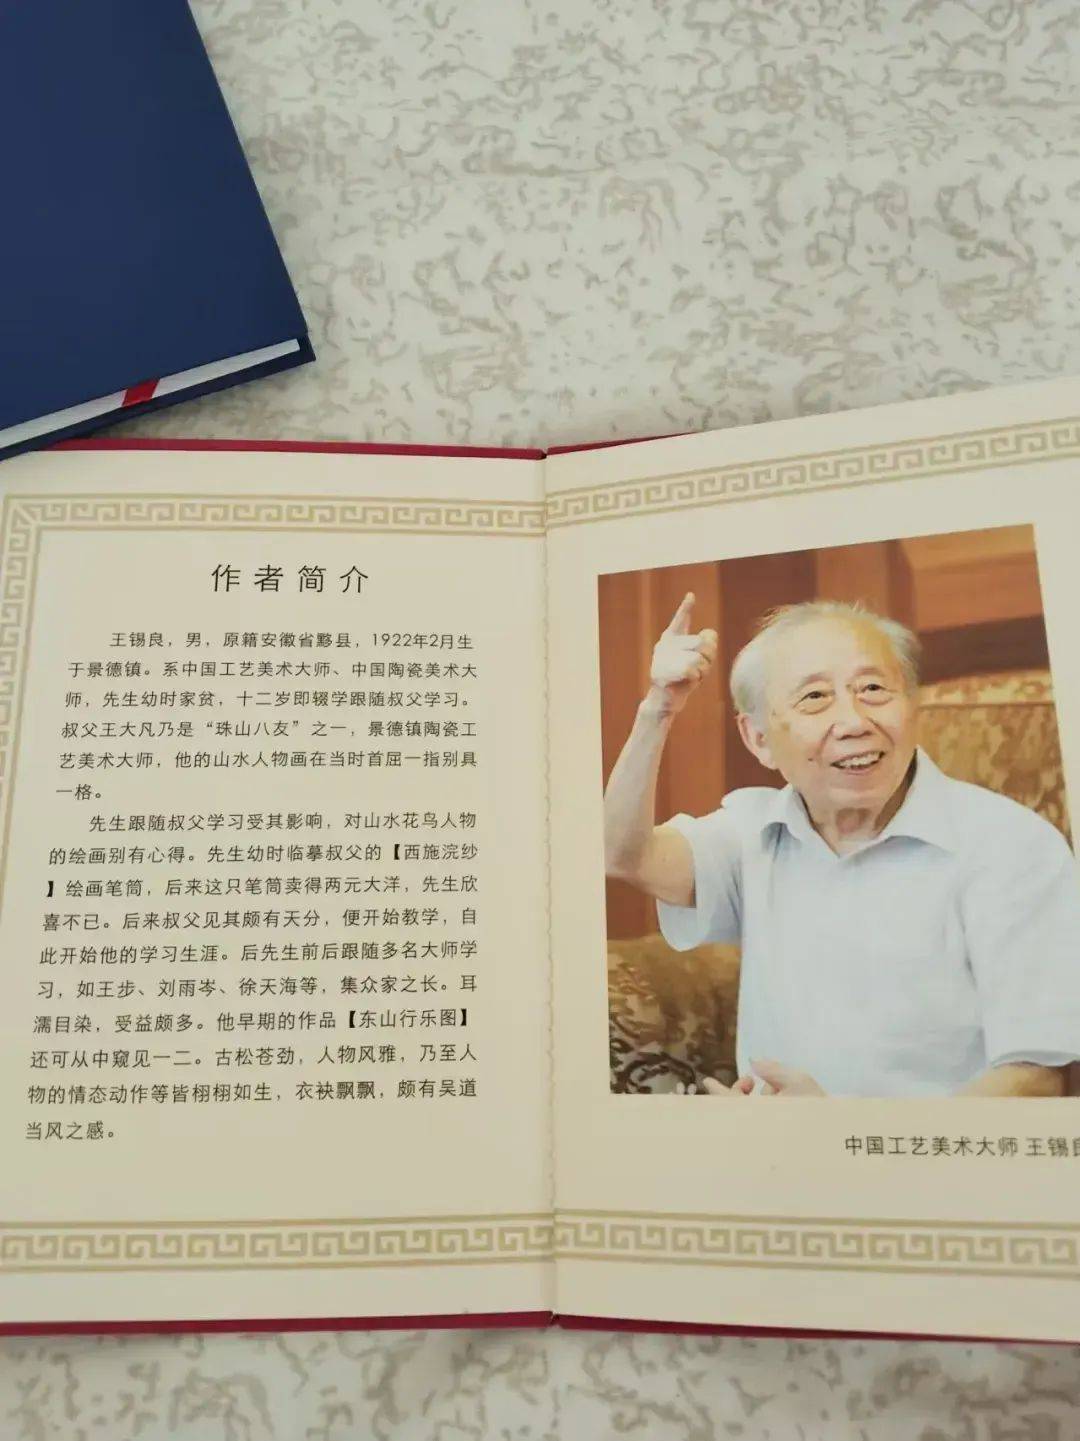 作者简介
王锡良，男，原籍安徽省黟县，1922年2月生
于景德镇。系中国工艺美术大师、中国陶瓷美术大
师，先生幼时家贫，十二岁即辍学跟随叔父学习。
叔父王大凡乃是“珠山八友”之一，景德镇陶瓷工
艺美术大师，他的山水人物画在当时首屈一指别具
一格。
先生跟随叔父学习受其影响，对山水花鸟人物
的绘画别有心得。先生幼时临摹叔父的【西施浣纱
】绘画笔筒，后来这只笔筒卖得两元大洋，先生欣
喜不已。后来叔父见其颇有天分，便开始教学，自
此开始他的学习生涯。后先生前后跟随多名大师学
习，如王步、刘雨岑、徐天海等，集众家之长。耳
濡目染，受益颇多。他早期的作品【东山行乐图】
还可从中窥见一二。古松苍劲，人物风雅，乃至人
物的情态动作等皆栩栩如生，衣袂飘飘，颇有吴道
当风之感。
中国工艺美术大师 王锡良